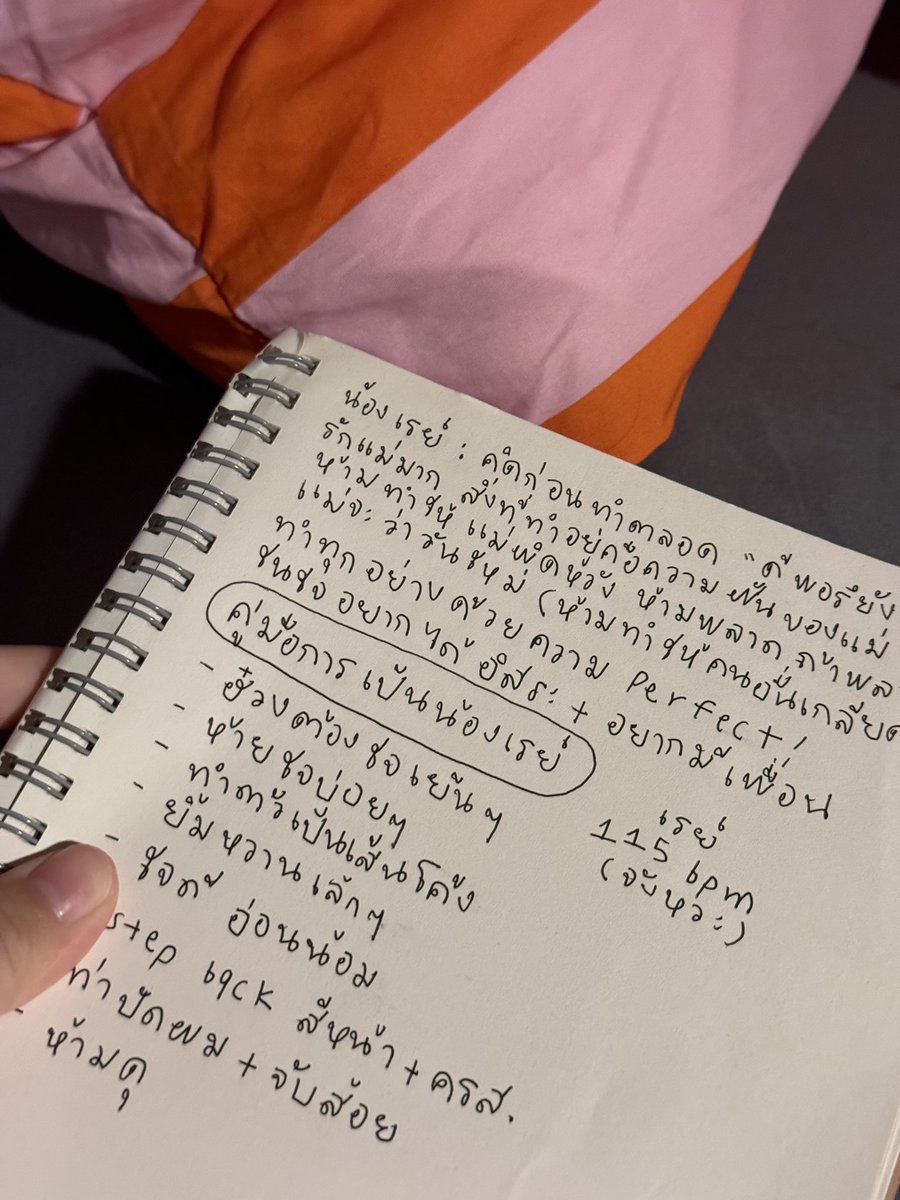 น้องเรย์ : คิดก่อนทำตลอด "ดีพอรึยัง
รักแม่มาก สิ่งที่ทำอยู่คือความฝันของแม่
ห้ามทำให้แม่ผิดหวัง ห้ามพลาด ถ้าพลา
แม่จะว่า วันใหม่ (ห้ามทำให้คนอื่นเกลียด
ทำทุกอย่างด้วยความ perfect!
ในใจอยากได้อิสระ + อยากมีเพื่อน
คู่มือการเป็นน้องเรย์
- ฮึ้วงต้องใจเย็นๆ
- หายใจบ่อยๆ
- ทำตัวเป็นเส้นโค้ง
- ยิ้มหวานเล็กๆ
- ใจดี อ่อนน้อม
step back สีหน้า + ครส.
ท่าปัดผม + จับสร้อย
- ห้ามดุ
เรย์
115 bpm
(จังหวะ)